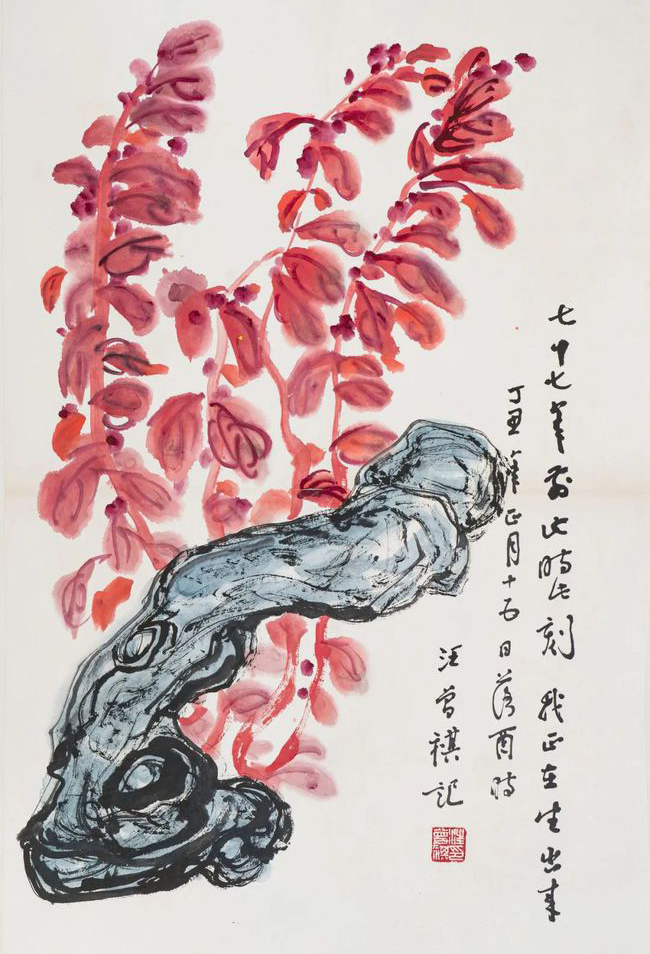 七十七年前此时此刻我正在生出来
丁丑年正月十五日落酉时
汪曾祺记
汪印曾祺